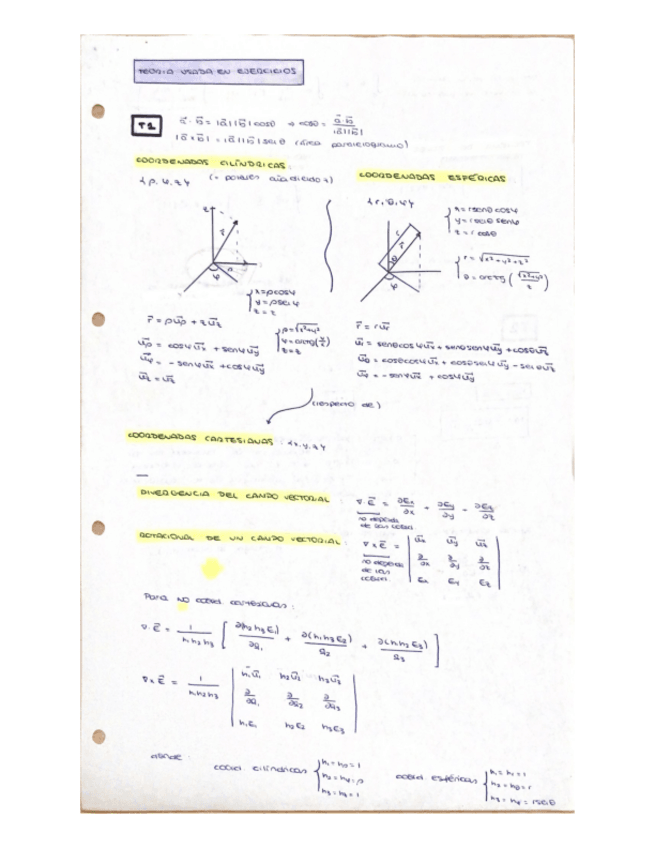 TEORIA USADA EN EJERCICIOS
T1
a⃗ · b⃗ = |a⃗||b⃗| cosθ → cosθ = a⃗·b⃗ / |a⃗||b⃗|
|a⃗ x b⃗| = |a⃗||b⃗| senθ (área paralelogramo)
COORDENADAS CILÍNDRICAS:
{ρ, φ, z} (= polares añadiendo z)
z
r⃗
φ
x = ρcosφ
y = ρsenφ
z = z
r⃗ = ρu⃗ρ + zu⃗z
u⃗ρ = cosφu⃗x + senφu⃗y
u⃗φ = -senφu⃗x + cosφu⃗y
u⃗z = u⃗z
ρ = √x²+y²
φ = arctg(y/x)
z = z
COORDENADAS ESFÉRICAS
{r, θ, φ}
x = rsenθcosφ
y = rsenθsenφ
z = rcosθ
r⃗
θ
φ
r = √x²+y²+z²
θ = arctg(√x²+y² / z)
r⃗ = ru⃗r
u⃗r = senθcosφu⃗x + senθsenφu⃗y + cosθu⃗z
u⃗θ = cosθcosφu⃗x + cosθsenφu⃗y - senθu⃗z
u⃗φ = -senφu⃗x + cosφu⃗y
(respecto de)
COORDENADAS CARTESIANAS {x, y, z}
DIVERGENCIA DEL CAMPO VECTORIAL
∇·E⃗ = ∂Ex/∂x + ∂Ey/∂y + ∂Ez/∂z
no depende
de las coord
ROTACIONAL DE UN CAMPO VECTORIAL:
∇xE⃗ = | u⃗x u⃗y u⃗z |
| ∂/∂x ∂/∂y ∂/∂z |
| Ex Ey Ez |
no depende
de las
coord
Para NO coord cartesianas:
∇·E⃗ = 1/h1h2h3 [ ∂(h2h3E1)/∂q1 + ∂(h1h3E2)/q2 + ∂(h1h2E3)/q3 ]
∇xE⃗ = 1/h1h2h3 | h1u⃗1 h2u⃗2 h3u⃗3 |
| ∂/∂q1 ∂/∂q2 ∂/∂q3 |
| h1E1 h2E2 h3E3 |
donde
coord. cilíndricas
h1 = hρ = 1
h2 = hφ = ρ
h3 = hz = 1
coord. esféricas
h1 = hr = 1
h2 = hθ = r
h3 = hφ = rsenθ